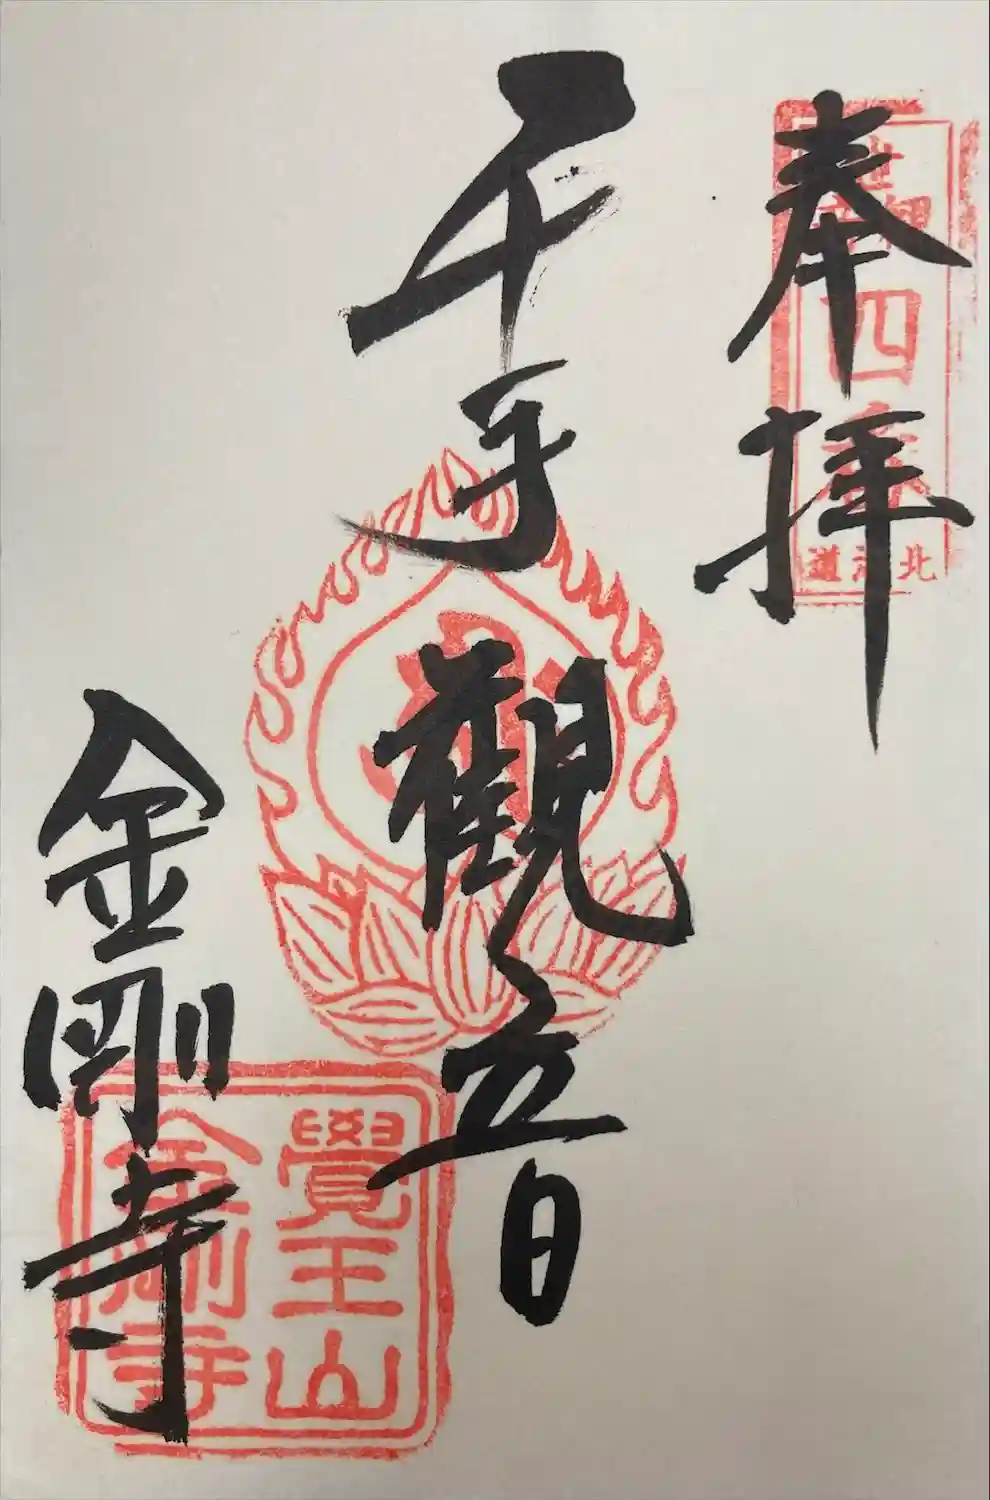 奉拝
四
北海道
千手觀音
金剛寺
覺王山
金剛寺